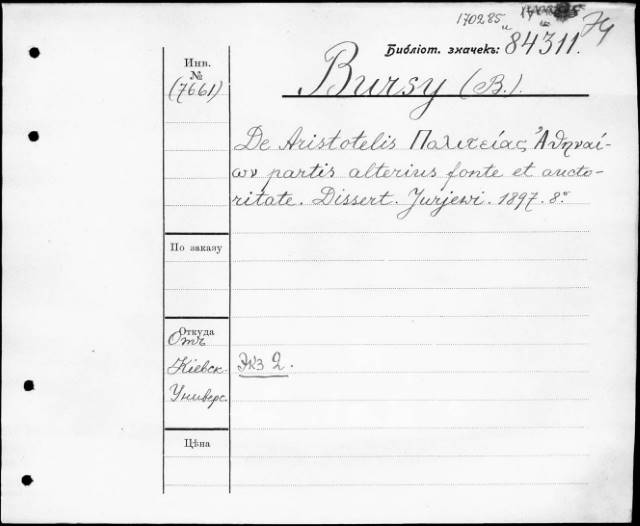 170285
74
Библіот. значекъ: 84311.
Инв.
№
(7661)
Bursy (B.).
De Aristotelis Πολιτείας Ἀθηναί-
ων partis alterius fonte et aucto-
ritate. Dissert. Jurjewi. 1897. 8°
По заказу
Откуда
Отъ
Кіевск.
Универс.
Экз 2.
Цѣна